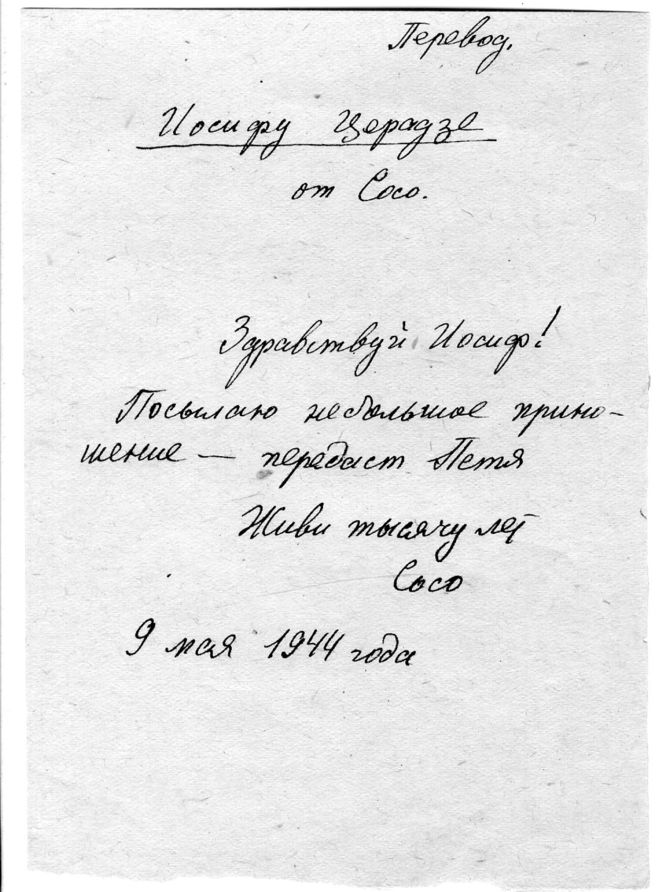 Перевод.
Иосифу Церадзе
от Сосо.
Здравствуй Иосиф!
Посылаю небольшое прино-
шение — передаст Петя
Живи тысячу лет
Сосо
9 мая 1944 года